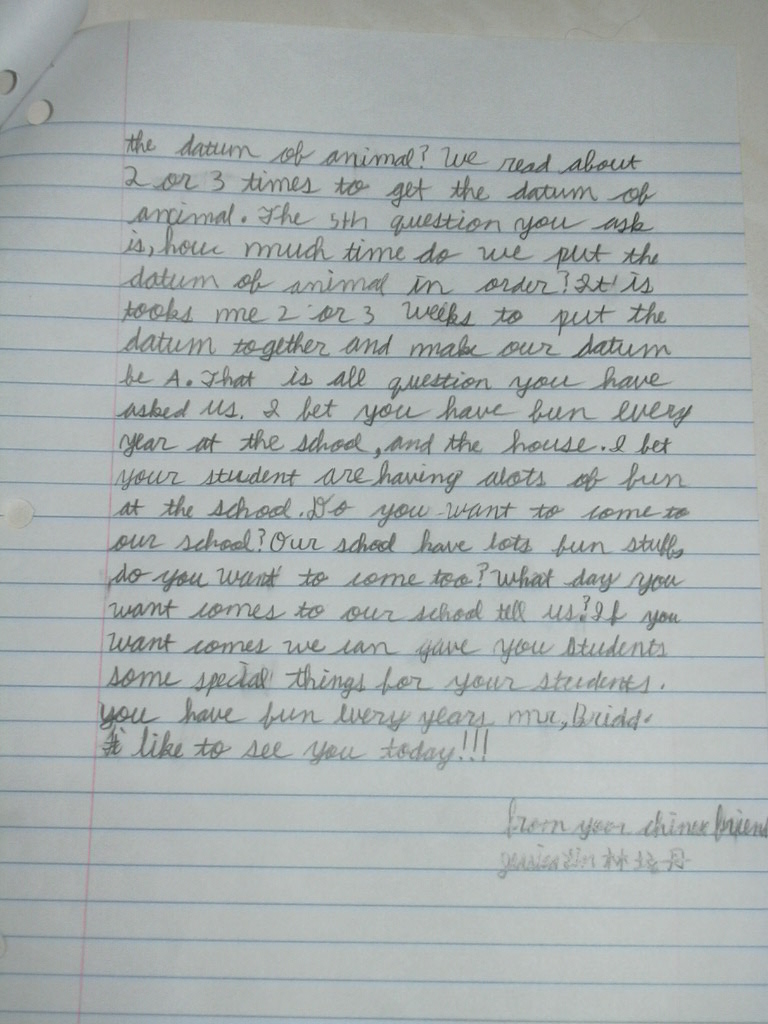 the datum of animal? We read about
2 or 3 times to get the datum of
animal. The 5th question you ask
is, how much time do we put the
datum of animal in order? It is
tooks me 2 or 3 weeks to put the
datum together and make our datum
be A. That is all question you have
asked us. I bet you have fun every
year at the school, and the house. I bet
your student are having alots of fun
at the school. Do you want to come to
our school? Our school have lots fun stuffs,
do you want to come too? What day you
want comes to our school tell us? If you
want comes we can gave you students
some special things for your students.
you have fun every years mr, Bridd.
I like to see you today!!!
from your chinex friend
林 丹